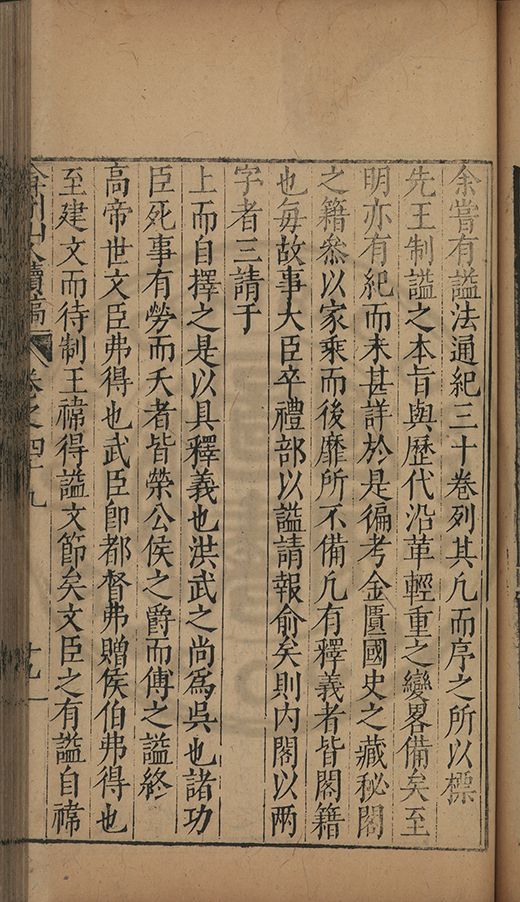 余嘗有謚法通紀三十卷列其凢而序之所以標
先王制謚之本旨與歷代沿革輕重之變畧備矣至
明亦有紀而未甚詳於是徧考金匱國史之藏秘閣
之籍叅以家乘而後靡所不備凢有釋義者皆閣籍
也毎故事大臣卒禮部以謚請報俞矣則内閣以两
字者三請于
上而自擇之是以具釋義也洪武之尚爲吳也諸功
臣死事有勞而夭者皆榮公侯之爵而傅之謚終
高帝世文臣弗得也武臣卽都督弗贈侯伯弗得也
至建文而待制王禕得謚文節矣文臣之有謚自禕
弇州山人續稿 卷之 九